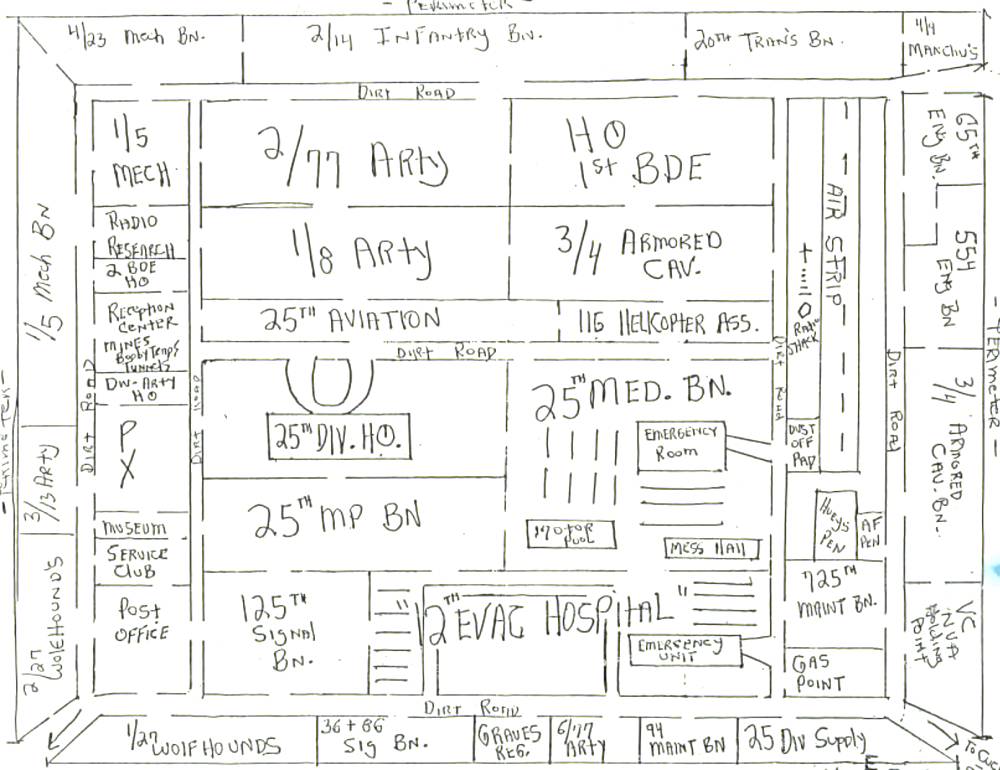 - PERIMETER -
4/23 Mech BN.
2/14 INFANTRY BN.
20TH TRAN'S BN.
4/9
MANCHU'S
DIRT ROAD
1/5
MECH
2/77 ARTY
HQ
1st BDE
65TH
ENG BN.
RADIO
RESEARCH
2 BDE
HQ
1/8 ARTY
3/4 ARMORED
CAV.
AIR STRIP
554
ENG BN
1/5 Mech BN
RECEPTION
CENTER
MINES
25TH AVIATION
116 HELICOPTER ASS.
SHACK
DIRT ROAD
DIV-ARTY
HQ
25TH DIV. HQ.
25TH MED. BN.
EMERGENCY
ROOM
DUST
OFF
PAD
DIRT ROAD
DIRT ROAD
DIRT ROAD
DIRT ROAD
3/4 ARMORED
CAV. BN.
- PERIMETER -
- PERIMETER -
PX
3/13 ARTY
25TH MP BN
MOTOR
POOL
MESS HALL
Huey's
PEN
AF
PEN
MUSEUM
SERVICE
CLUB
2/27
WOLFHOUNDS
POST
OFFICE
125TH
SIGNAL
BN.
"12TH EVAC HOSPITAL"
EMERGENCY
UNIT
725TH
MAINT BN.
GAS
POINT
VC
NVA
Holding
POINT
DIRT ROAD
1/27 WOLFHOUNDS
36 + 86
SIG BN.
GRAVES
REG.
6/77
ARTY
94
MAINT BN
25 DIV Supply